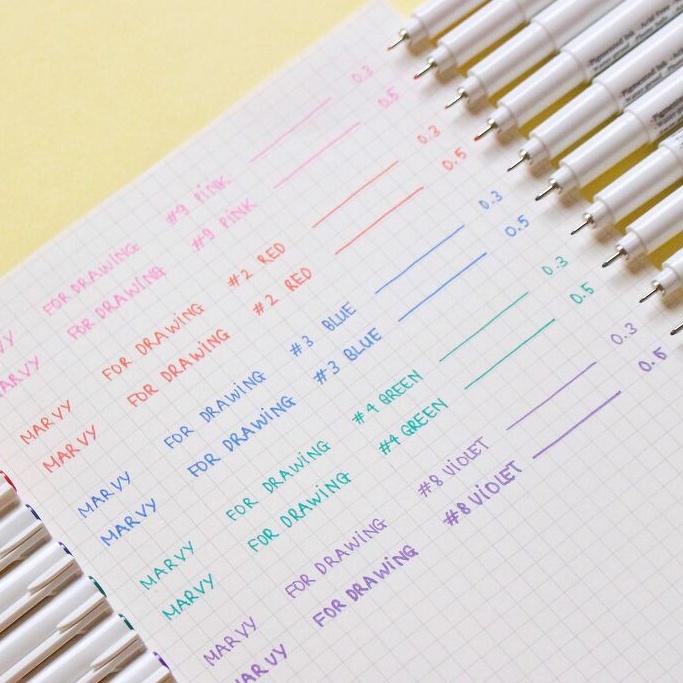 FOR DRAWING #9 PiNK 0.3
MARVY FOR DRAWING #9 PiNK 0.5
MARVY FOR DRAWING #2 RED 0.3
MARVY FOR DRAWING #2 RED 0.5
MARVY FOR DRAWING #3 BLUE 0.3
MARVY FOR DRAWING #3 BLUE 0.5
MARVY FOR DRAWING #4 GREEN 0.3
MARVY FOR DRAWING #4 GREEN 0.5
MARVY FOR DRAWING #8 ViOLET 0.3
MARVY FOR DRAWING #8 ViOLET 0.5
Pigmented Ink
Pigmented Ink